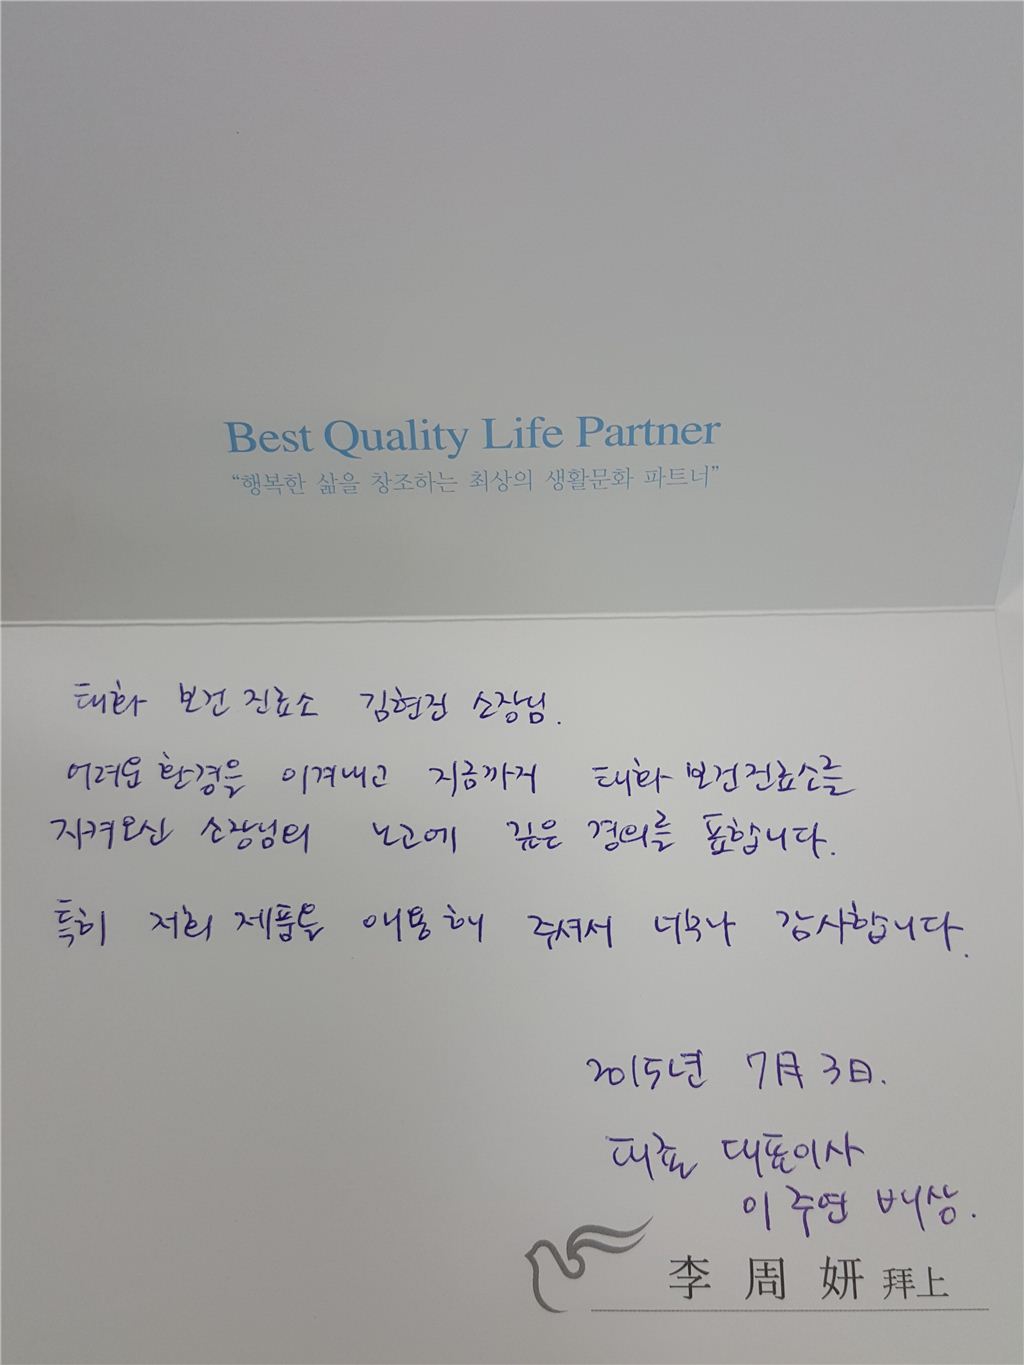 Best Quality Life Partner
“행복한 삶을 창조하는 최상의 생활문화 파트너”
태화 보건진료소 김현진 소장님.
어려운 환경을 이겨내고 지금까지 태화보건진료소를
지켜오신 소장님의 노고에 깊은 경의를 표합니다.
특히 저희 제품을 애용해 주셔서 너무나 감사합니다.
2015년 7月 3日.
대표이사
이주연 배상.
李周妍 拜上